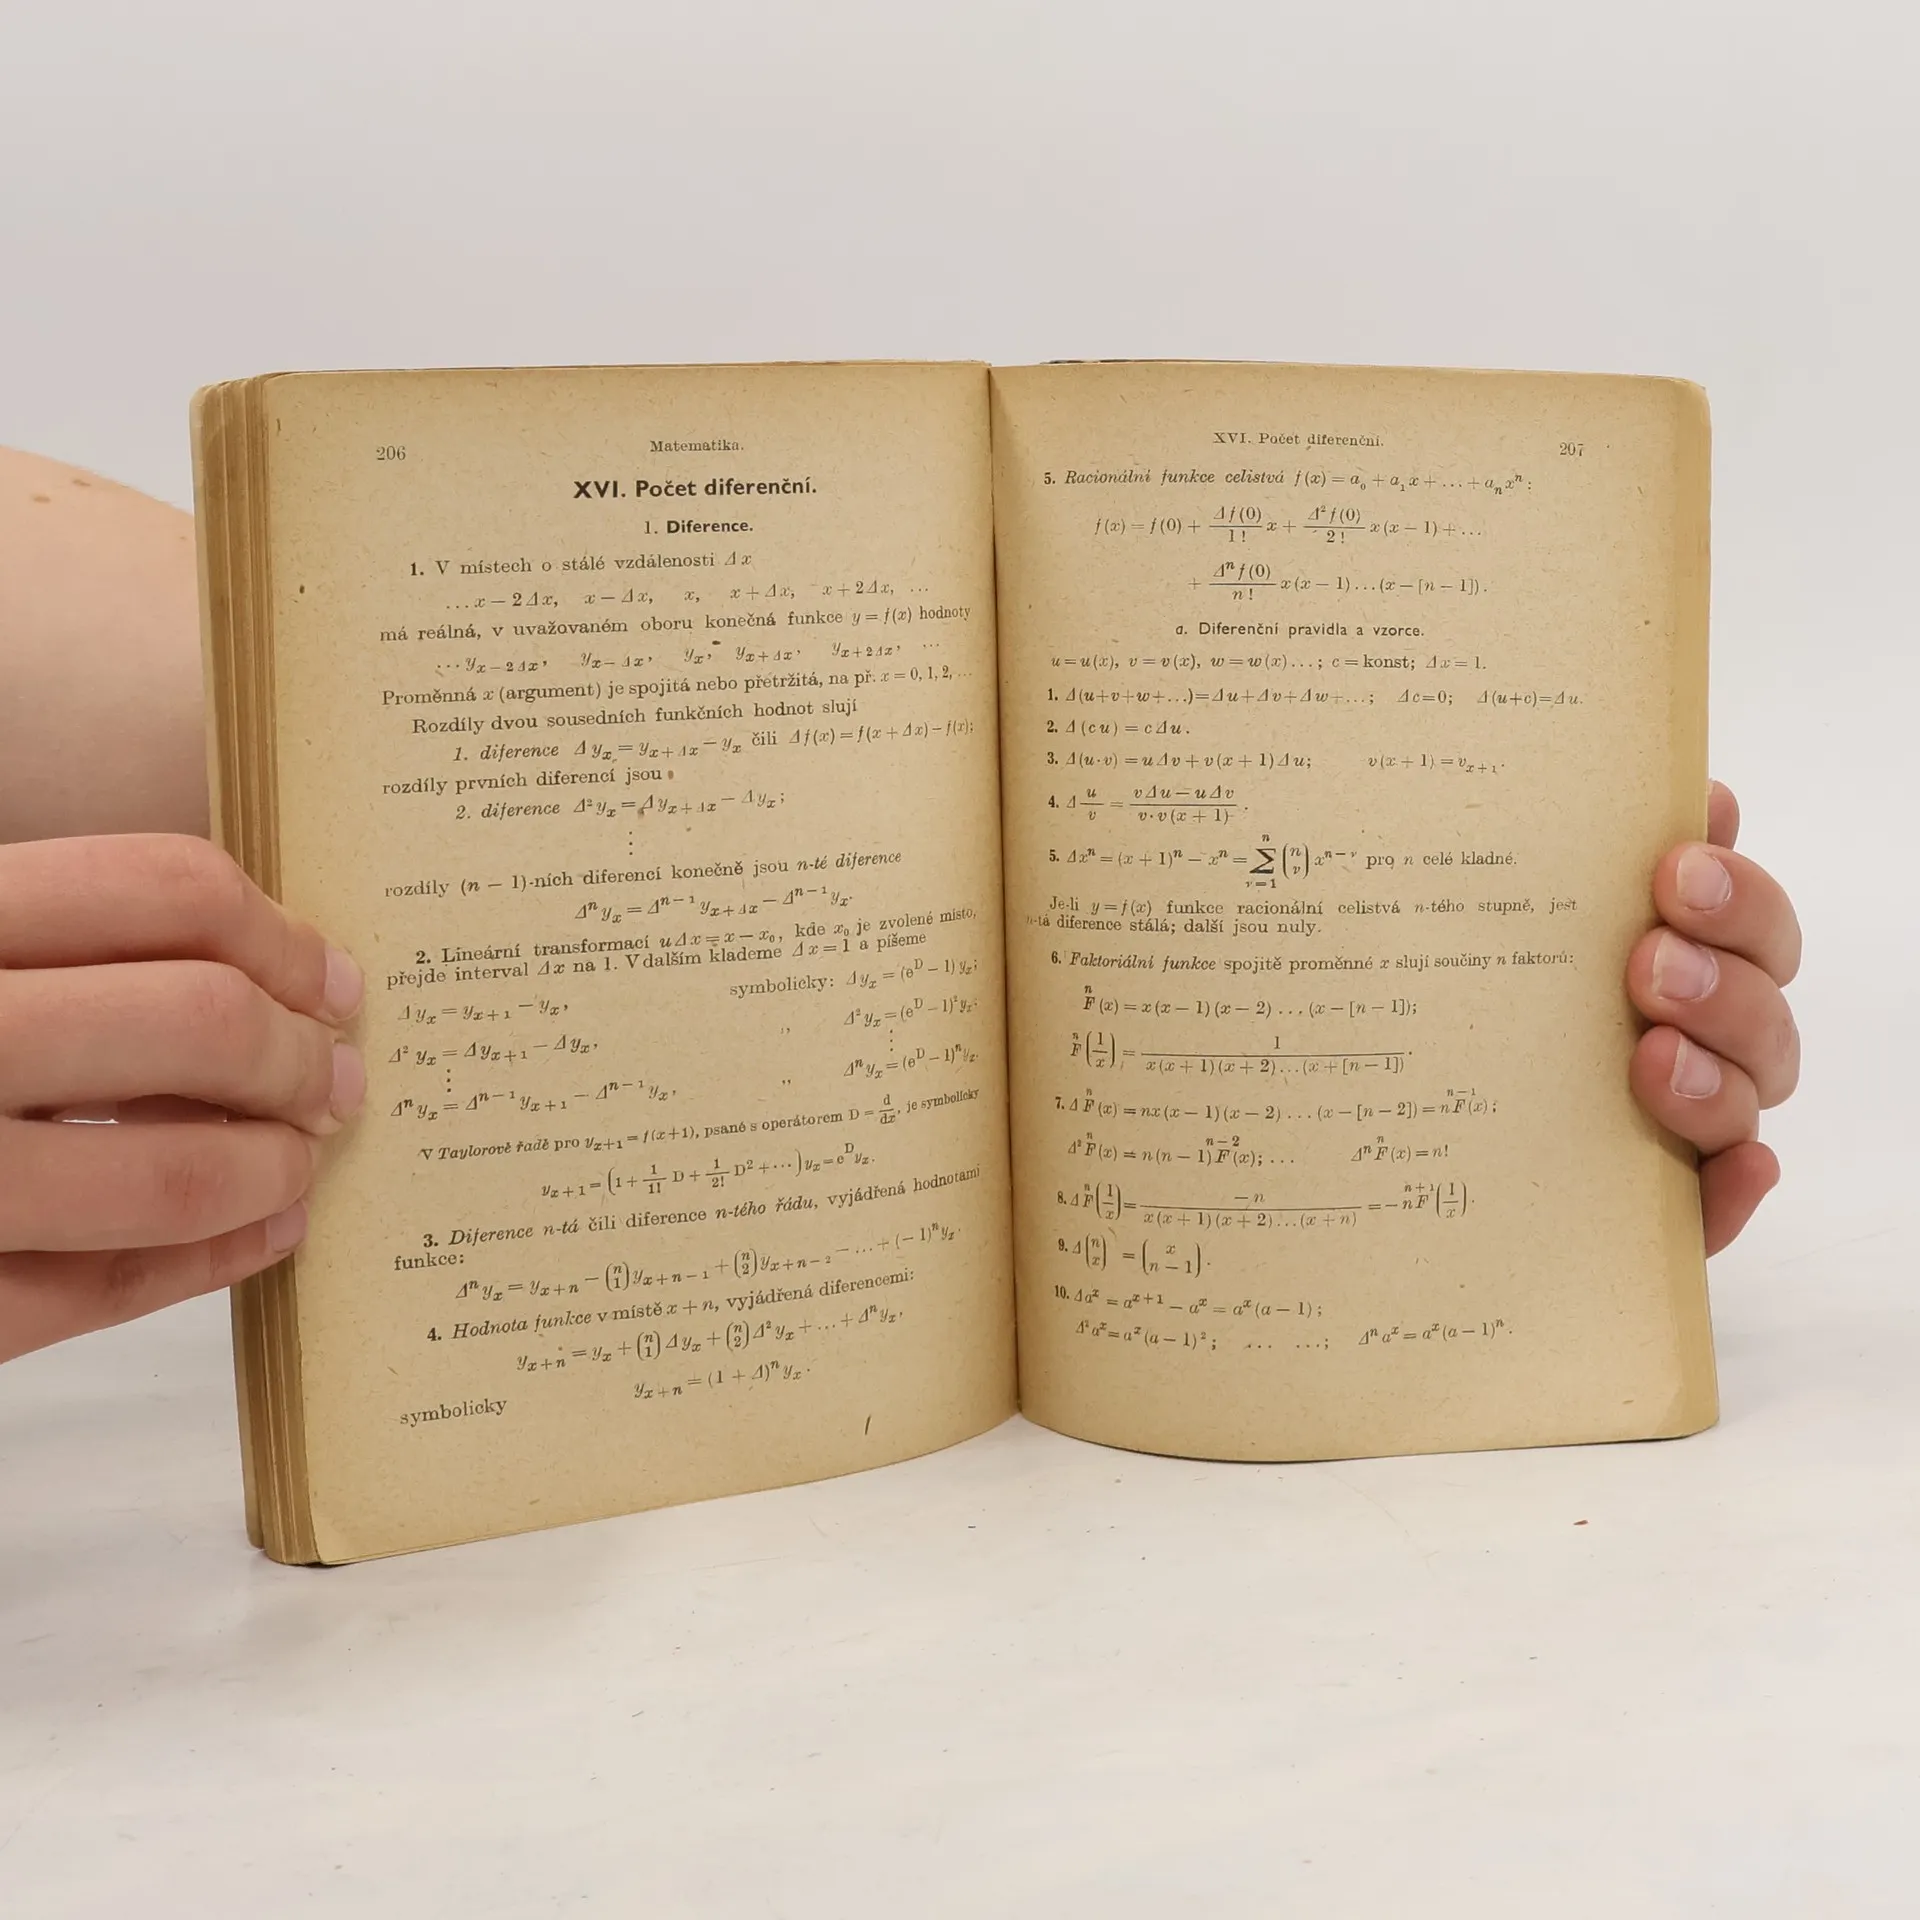 206 Matematika.
XVI. Počet diferenční.
1. Diference.
1. V místech o stálé vzdálenosti Δx
...x − 2Δx, x − Δx, x, x + Δx, x + 2Δx, ...
má reálná, v uvažovaném oboru konečná funkce y = f(x) hodnoty
... y_{x−2Δx}, y_{x−Δx}, y_x, y_{x+Δx}, y_{x+2Δx}, ...
Proměnná x (argument) je spojitá nebo přetržitá, na př. x = 0, 1, 2, ...
Rozdíly dvou sousedních funkčních hodnot slují
1. diference Δy_x = y_{x+Δx} − y_x čili Δf(x) = f(x + Δx) − f(x);
rozdíly prvních diferencí jsou
2. diference Δ²y_x = Δy_{x+Δx} − Δy_x;
⋮
rozdíly (n − 1)-ních diferencí konečně jsou n-té diference
Δⁿy_x = Δⁿ⁻¹y_{x+Δx} − Δⁿ⁻¹y_x.
2. Lineární transformací uΔx = x − x₀, kde x₀ je zvolené místo,
přejde interval Δx na 1. V dalším klademe Δx = 1 a píšeme
Δy_x = y_{x+1} − y_x, symbolicky: Δy_x = (e^D − 1) y_x;
Δ²y_x = Δy_{x+1} − Δy_x, ,, Δ²y_x = (e^D − 1)²y_x;
⋮ ⋮
Δⁿy_x = Δⁿ⁻¹y_{x+1} − Δⁿ⁻¹y_x, ,, Δⁿy_x = (e^D − 1)ⁿy_x.
V Taylorově řadě pro y_{x+1} = f(x+1), psané s operátorem D = d/dx, je symbolicky
y_{x+1} = (1 + 1/1! D + 1/2! D² + ···) y_x = e^D y_x.
3. Diference n-tá čili diference n-tého řádu, vyjádřená hodnotami
funkce:
Δⁿy_x = y_{x+n} − (n 1) y_{x+n−1} + (n 2) y_{x+n−2} − ... + (−1)ⁿy_x.
4. Hodnota funkce v místě x + n, vyjádřená diferencemi:
y_{x+n} = y_x + (n 1) Δy_x + (n 2) Δ²y_x + ... + Δⁿy_x,
symbolicky y_{x+n} = (1 + Δ)ⁿ y_x.
XVI. Počet diferenční. 207
5. Racionální funkce celistvá f(x) = a₀ + a₁x + ... + aₙxⁿ:
f(x) = f(0) + Δf(0)/1! x + Δ²f(0)/2! x(x − 1) + ...
+ Δⁿf(0)/n! x(x − 1)...(x − [n − 1]).
a. Diferenční pravidla a vzorce.
u = u(x), v = v(x), w = w(x)...; c = konst; Δx = 1.
1. Δ(u+v+w+...)=Δu+Δv+Δw+...; Δc=0; Δ(u+c)=Δu.
2. Δ(cu) = cΔu.
3. Δ(u·v) = uΔv + v(x + 1)Δu; v(x + 1) = v_{x+1}.
4. Δ u/v = (vΔu − uΔv)/(v·v(x + 1)).
5. Δxⁿ = (x + 1)ⁿ − xⁿ = ∑_{ν=1}^{n} (n ν) x^{n−ν} pro n celé kladné.
Je-li y = f(x) funkce racionální celistvá n-tého stupně, jest
n-tá diference stálá; další jsou nuly.
6. Faktoriální funkce spojitě proměnné x slují součiny n faktorů:
F^n(x) = x(x − 1)(x − 2)...(x − [n − 1]);
F^n(1/x) = 1/(x(x + 1)(x + 2)...(x + [n − 1])).
7. ΔF^n(x) = nx(x − 1)(x − 2)...(x − [n − 2]) = nF^{n−1}(x);
Δ²F^n(x) = n(n − 1)F^{n−2}(x); ... ΔⁿF^n(x) = n!
8. ΔF^n(1/x) = −n/(x(x + 1)(x + 2)...(x + n)) = −nF^{n+1}(1/x).
9. Δ(n x) = (x n − 1).
10. Δaˣ = aˣ⁺¹ − aˣ = aˣ(a − 1);
Δ²aˣ = aˣ(a − 1)²; ... ...; Δⁿaˣ = aˣ(a − 1)ⁿ.